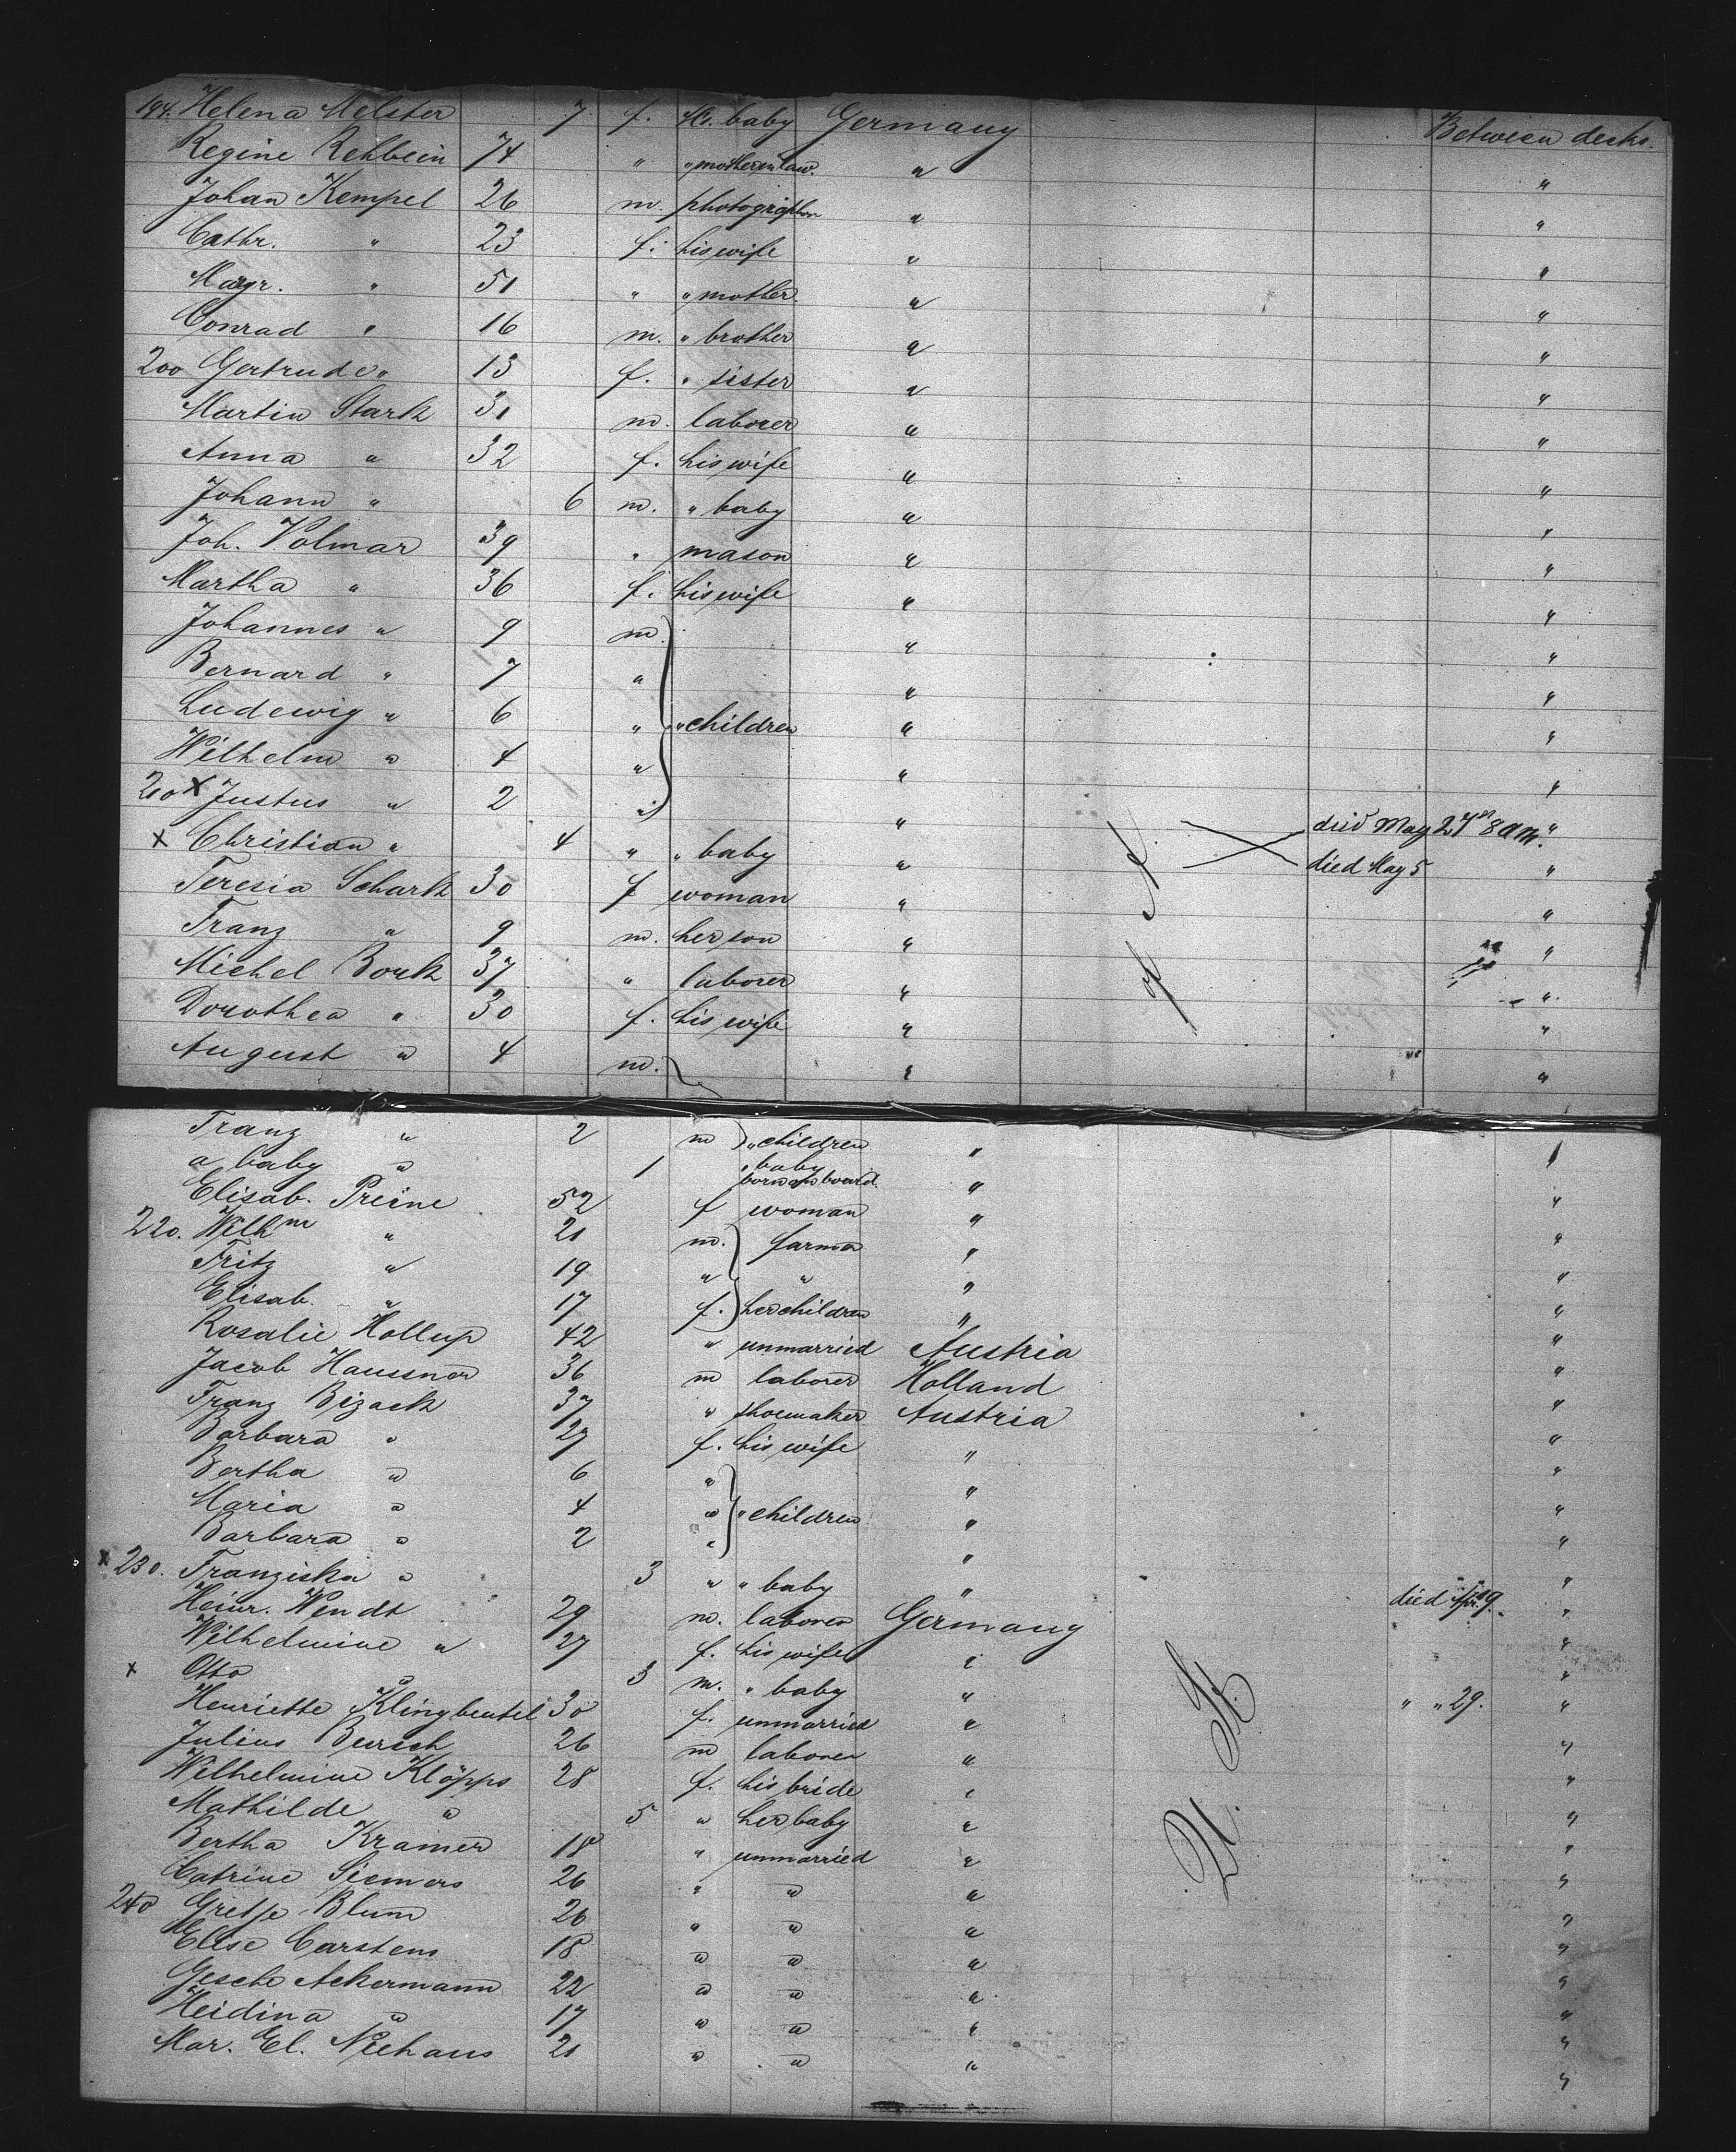 194. Helena Melster 7 f. Hr. baby Germany Between decks.
Regine Rehbein 74 " " mother in law. " "
Johan Kempel 26 m. photographer " "
Cathr. " 23 f. his wife " "
Margr. " 51 " " mother " "
Conrad " 16 m. " brother " "
200 Gertrude " 13 f. " sister " "
Martin Stark 31 m. laborer " "
Anna " 32 f. his wife " "
Johann " 6 m. " baby " "
Joh. Volmar 39 " mason " "
Martha " 36 f. his wife " "
Johannes " 9 m. " "
Bernard " 7 " " "
Ludewig " 6 " " children " "
Wilhelm " 4 " " "
210 x Justus " 2 " " died May 27th 8 am. "
x Christian " 4 " " baby " died May 5 "
Teresia Schark 30 f woman " "
Franz " 9 m. her son " "
x Michel Bork 37 " laborer " "
x Dorothea " 30 f. his wife " "
August " 4 m. " "
Franz " 2 m " children " "
a baby " 1 " baby born on board. " "
Elisab. Preine 52 f woman " "
220. Wilhm " 21 m. farmer " "
Fritz " 19 " " " "
Elisab. " 17 f. her children " "
Rosalie Hollup 42 " unmarried Austria "
Jacob Haussner 36 m laborer Holland "
Franz Bizack 37 " shoemaker Austria "
Barbara " 27 f. his wife " "
Bertha " 6 " " "
Maria " 4 " " children " "
Barbara " 2 " " "
x 230. Franziska " 3 " " baby " died Apr. 9. "
Heinr. Wendt 29 m. laborer Germany "
Wilhelmine " 27 f. his wife " "
x Otto " 3 m. " baby " " " 29. "
Henriette Klingbeutel 30 f. unmarried " "
Julius Bursch 26 m laborer " "
Wilhelmine Klöpps 28 f. his bride " "
Mathilde " 5 " her baby " "
Bertha Kramer 18 " unmarried " "
Catrine Siemers 26 " " " "
240 Gretje Blum 26 " " " "
Elise Carstens 18 " " " "
Gesche Ackermann 22 " " " "
Heidina " 17 " " " "
Mar. El. Niehaus 21 " " " "
U. St.